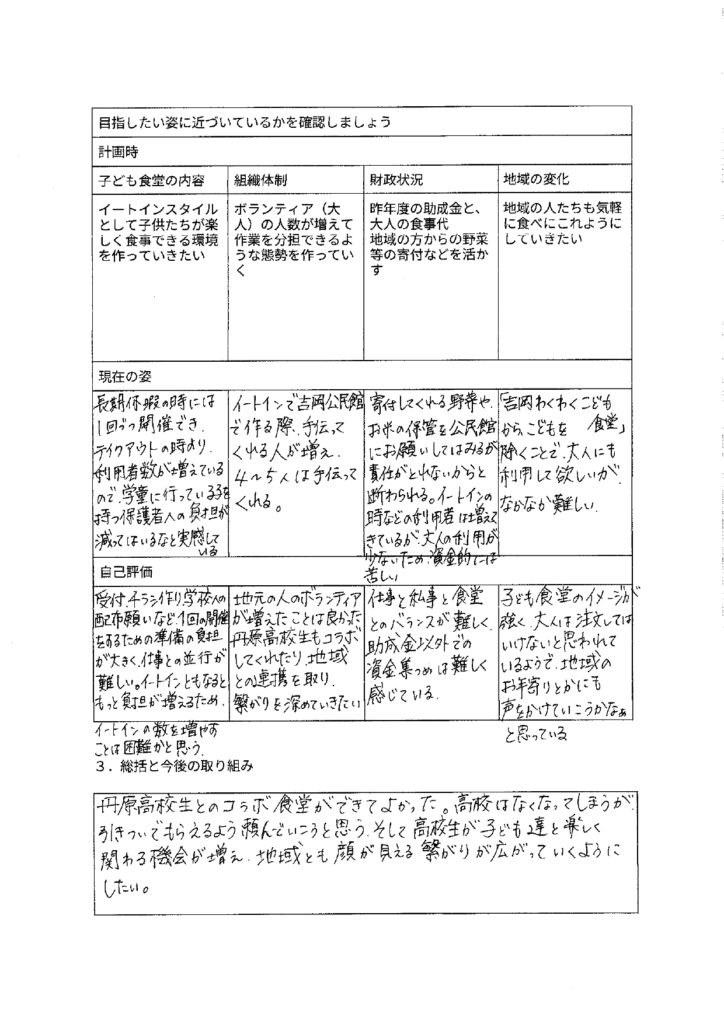 目指したい姿に近づいているかを確認しましょう
計画時
子ども食堂の内容
組織体制
財政状況
地域の変化
イートインスタイル
として子供たちが楽
しく食事できる環境
を作っていきたい
ボランティア（大
人）の人数が増えて
作業を分担できるよ
うな態勢を作ってい
く
昨年度の助成金と、
大人の食事代
地域の方からの野菜
等の寄付などを活か
す
地域の人たちも気軽
に食べにこれように
していきたい
現在の姿
長期休暇の時には
1回づつ開催でき、
テイクアウトの時より、
利用者数が増えている
ので、学童に行っている子を
持つ保護者への負担が
減ってはいるなと実感して
いる
イートインで吉岡公民館
で作る際、手伝って
くれる人が増え、
4〜5人は手伝って
くれる。
寄付してくれる野菜や、
お米の保管を公民館
にお願いしてはみるが
責任がとれないからと
断わられる。イートインの
時などの利用者は増えて
きているが、大人の利用が
少ないため、資金的には
苦しい
「吉岡わくわくこども
食堂」
からこどもを
除くことで、大人にも
利用して欲しいが、
なかなか難しい。
自己評価
受付、チラシ作り、学校への
配布願いなど1回の開催
をするための準備の負担
が大きく、仕事との並行が
難しい。イートインともなると、
もっと負担が増えるため、
イートインの数を増やす
ことは困難かと思う。
地元の人のボランティア
が増えたことは良かった
丹原高校生もコラボ
してくれたり、地域
との連携を取り、
繋がりを深めていきたい
仕事と私事と食堂
とのバランスが難しく、
助成金以外での
資金集つめは難しく
感じている。
子ども食堂のイメージが
強く、大人は注文しては
いけないと思われて
いるようで、地域の
お年寄りとかにも
声をかけていこうかなぁ
と思っている
3．総括と今後の取り組み
丹原高校生とのコラボ食堂ができてよかった。高校はなくなってしまうが、
引きついでもらえるよう頼んでいこうと思う。そして高校生が子ども達と楽しく
関わる機会が増え、地域とも顔が見える繋がりが広がっていくように
したい。